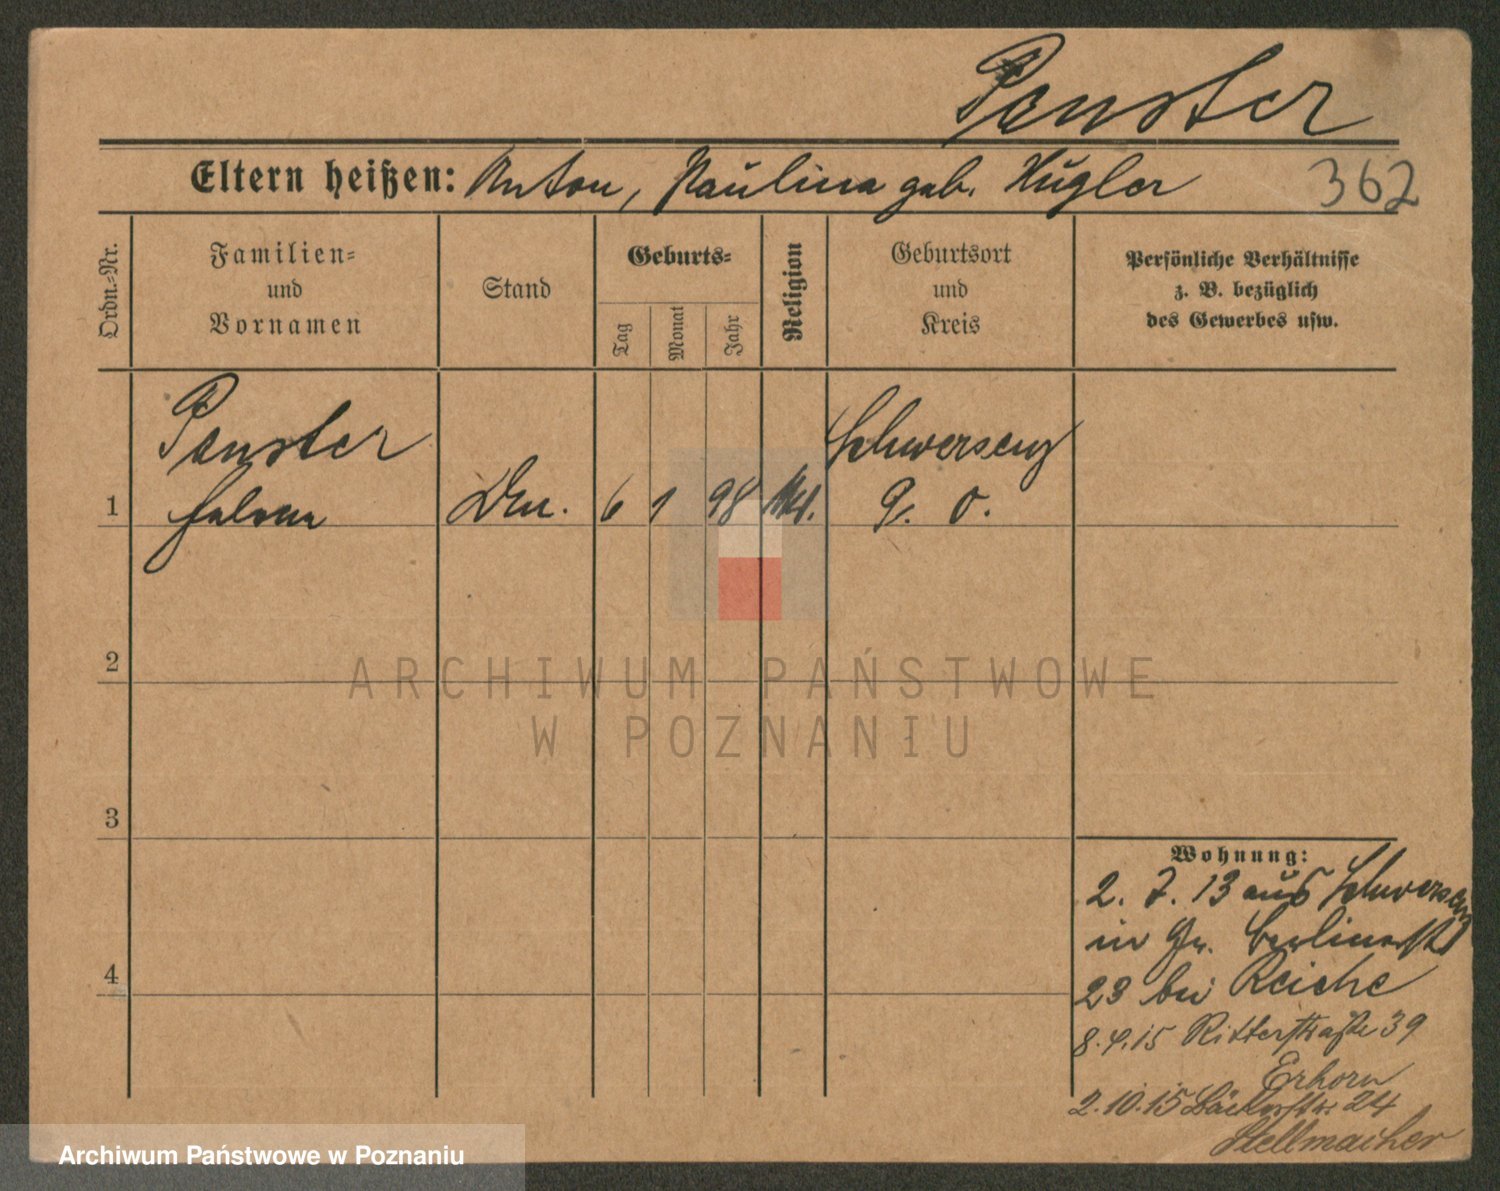 Penster
Eltern heißen: Anton, Paulina geb. Hügler
362
Ordn.-Nr.
Familien-
und
Vornamen
Stand
Geburts-
Tag
Monat
Jahr
Religion
Geburtsort
und
Kreis
Persönliche Verhältnisse
z. B. bezüglich
des Gewerbes usw.
1
Penster
Helena
6 1 98
Schwersenz
P. O.
2
3
4
Wohnung:
2. 7. 13 aus Schwersenz
in Gr. Berlinerstr
23 bei Reiche
8. 4. 15 Ritterstraße 39
Erhorn
2. 10. 15 Bäckerstr. 24
Stellmacher
ARCHIWUM PAŃSTWOWE
W POZNANIU
Archiwum Państwowe w Poznaniu